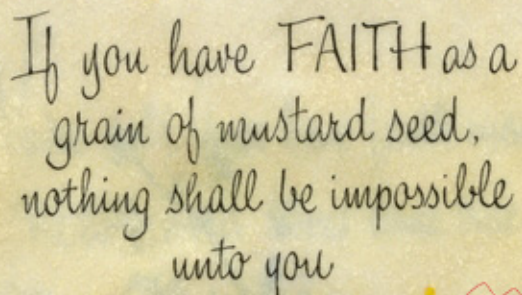 If you have FAITH as a
grain of mustard seed,
nothing shall be impossible
unto you